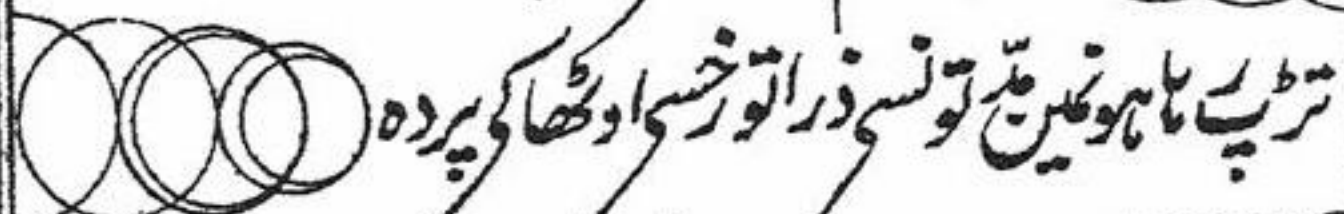 تڑپ رہا ہونمین مدّتونسی ذرا تو رخسی اوٹھاکی پردہ